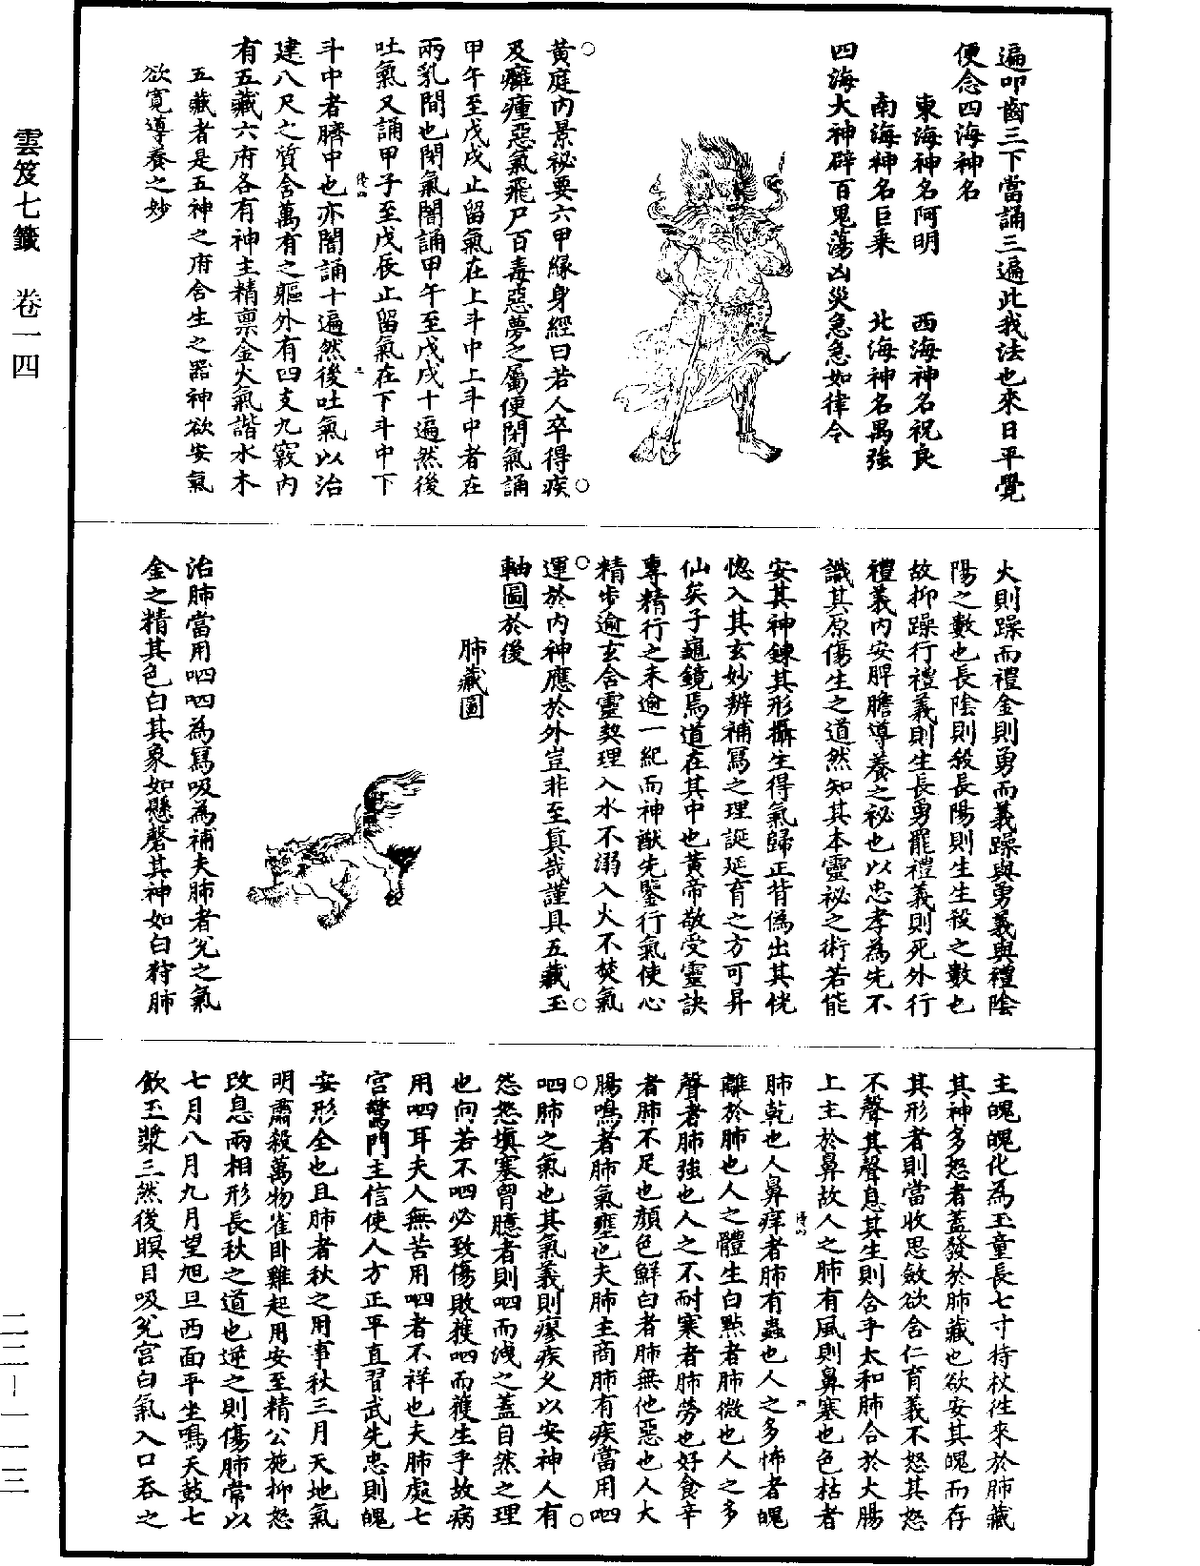 雲笈七籤 卷一四
遍叩齒三下當誦三遍此我法也來日平覺
便念四海神名
東海神名阿明 西海神名祝良
南海神名巨乘 北海神名禺強
四海大神辟百鬼蕩凶災急急如律令
黃庭內景祕要六甲緣身經曰若人卒得疾
及癰瘇惡氣飛尸百毒惡夢之屬便閉氣誦
甲午至戊戌止留氣在上斗中上斗中者在
兩乳間也閉氣闇誦甲午至戊戌十遍然後
吐氣又誦甲子至戊辰止留氣在下斗中下
斗中者臍中也亦闇誦十遍然後吐氣以治
建八尺之質含萬有之軀外有四支九竅內
有五藏六府各有神主精稟金火氣諧水木
五藏者是五神之府含生之器神欲安氣
欲寬導養之妙
火則躁而禮金則勇而義躁與勇義與禮陰
陽之數也長陰則殺長陽則生生殺之數也
故抑躁行禮義則生長勇罷禮義則死外行
禮義內安脾膽導養之祕也以忠孝為先不
識其原傷生之道然知其本靈祕之術若能
安其神鍊其形攝生得氣歸正背偽出其恍
惚入其玄妙辨補寫之理誕延育之方可昇
仙矣子龜鏡焉道在其中也黃帝敬受靈訣
專精行之未逾一紀而神猷先鑒行氣使心
精步逾玄含靈契理入水不溺入火不焚氣
運於內神應於外豈非至真哉謹具五藏玉
軸圖於後
肺藏圖
治肺當用呬呬為寫吸為補夫肺者兌之氣
金之精其色白其象如懸磬其神如白狩肺
主魄魄化為玉童長七寸持杖往來於肺藏
其神多怒者蓋發於肺藏也欲安其魄而存
其形者則當收思斂欲含仁育義不怒其怒
不聲其聲息其生則含乎太和肺合於大腸
上主於鼻故人之肺有風則鼻塞也色枯者
肺乾也人鼻痒者肺有蟲也人之多怖者魄
離於肺也人之體生白點者肺微也人之多
聲者肺強也人之不耐寒者肺勞也好食辛
者肺不足也顏色鮮白者肺無他惡也人大
腸鳴者肺氣壅也夫肺主商肺有疾當用呬
呬肺之氣也其氣義則瘳疾又以安神人有
怨怒填塞胷臆者則呬而洩之蓋自然之理
也向若不呬必致傷敗獲呬而獲生乎故病
用呬耳夫人無苦用呬者不祥也夫肺處七
宮驚門主信使人方正平直習武先忠則魄
安形全也且肺者秋之用事秋三月天地氣
明肅殺萬物雀卧雞起用安至精公施抑怒
改息兩相形長秋之道也逆之則傷肺常以
七月八月九月望旭旦西面平坐鳴天鼓七
飲玉漿三然後瞑目吸兌宮白氣入口吞之
二二—一一三